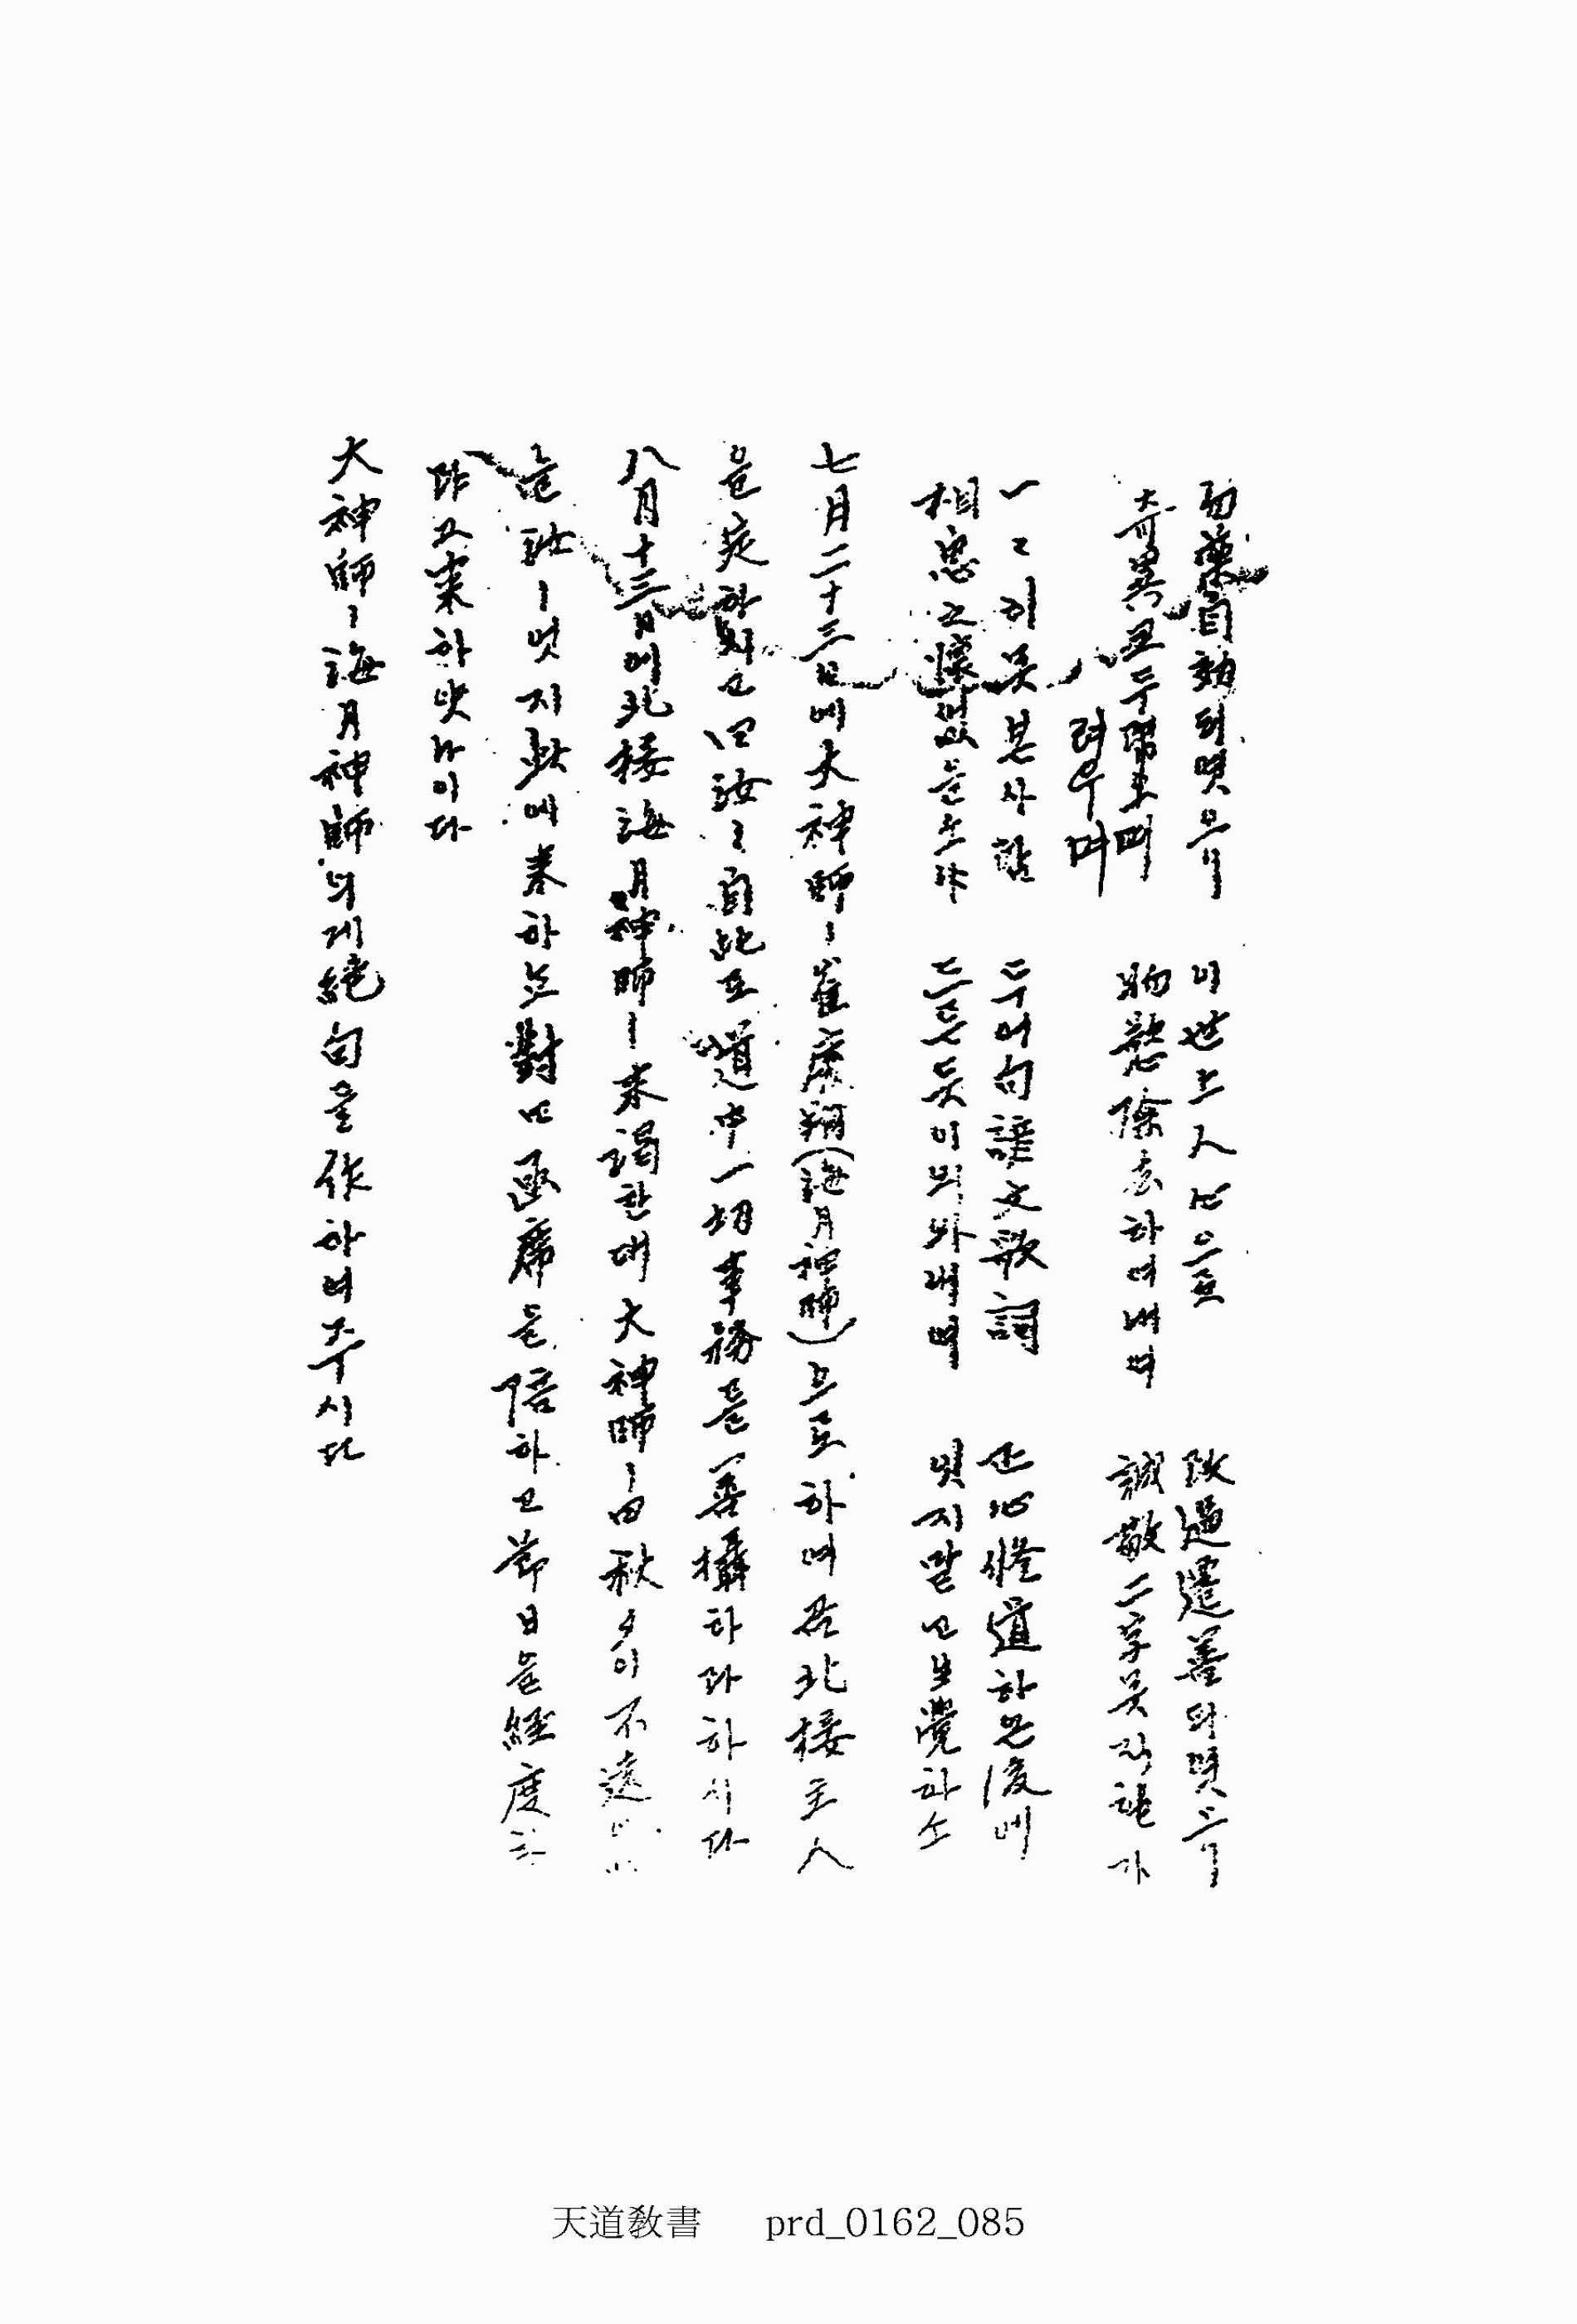 勿藥自効되엿으니 이世上人心으로 改過遷善되엿스니
奇異코두렵오며 物慾除去하여내며 誠敬二字못직힐가
려우며
一一히못본사람 두어句諺文歌詞 正心修道하온後에
相思之懷없을소냐 드른듯이외와내며 잇지말고보覺하소
七月二十三日에大神師ㅣ崔慶翔(海月神師)으로하여금北接主人
을定하시고曰汝ㅣ自此로道中一切事務를善攝하라하시다
八月十三日에北接海月神師ㅣ來謁한대大神師ㅣ曰秋夕이不遠
늘汝ㅣ엇지此에來하뇨對曰函席을陪하고節日을經度
야來하얏나이다
大神師ㅣ海月神師의게絶句을作하여주시다
天道敎書 prd_0162_085